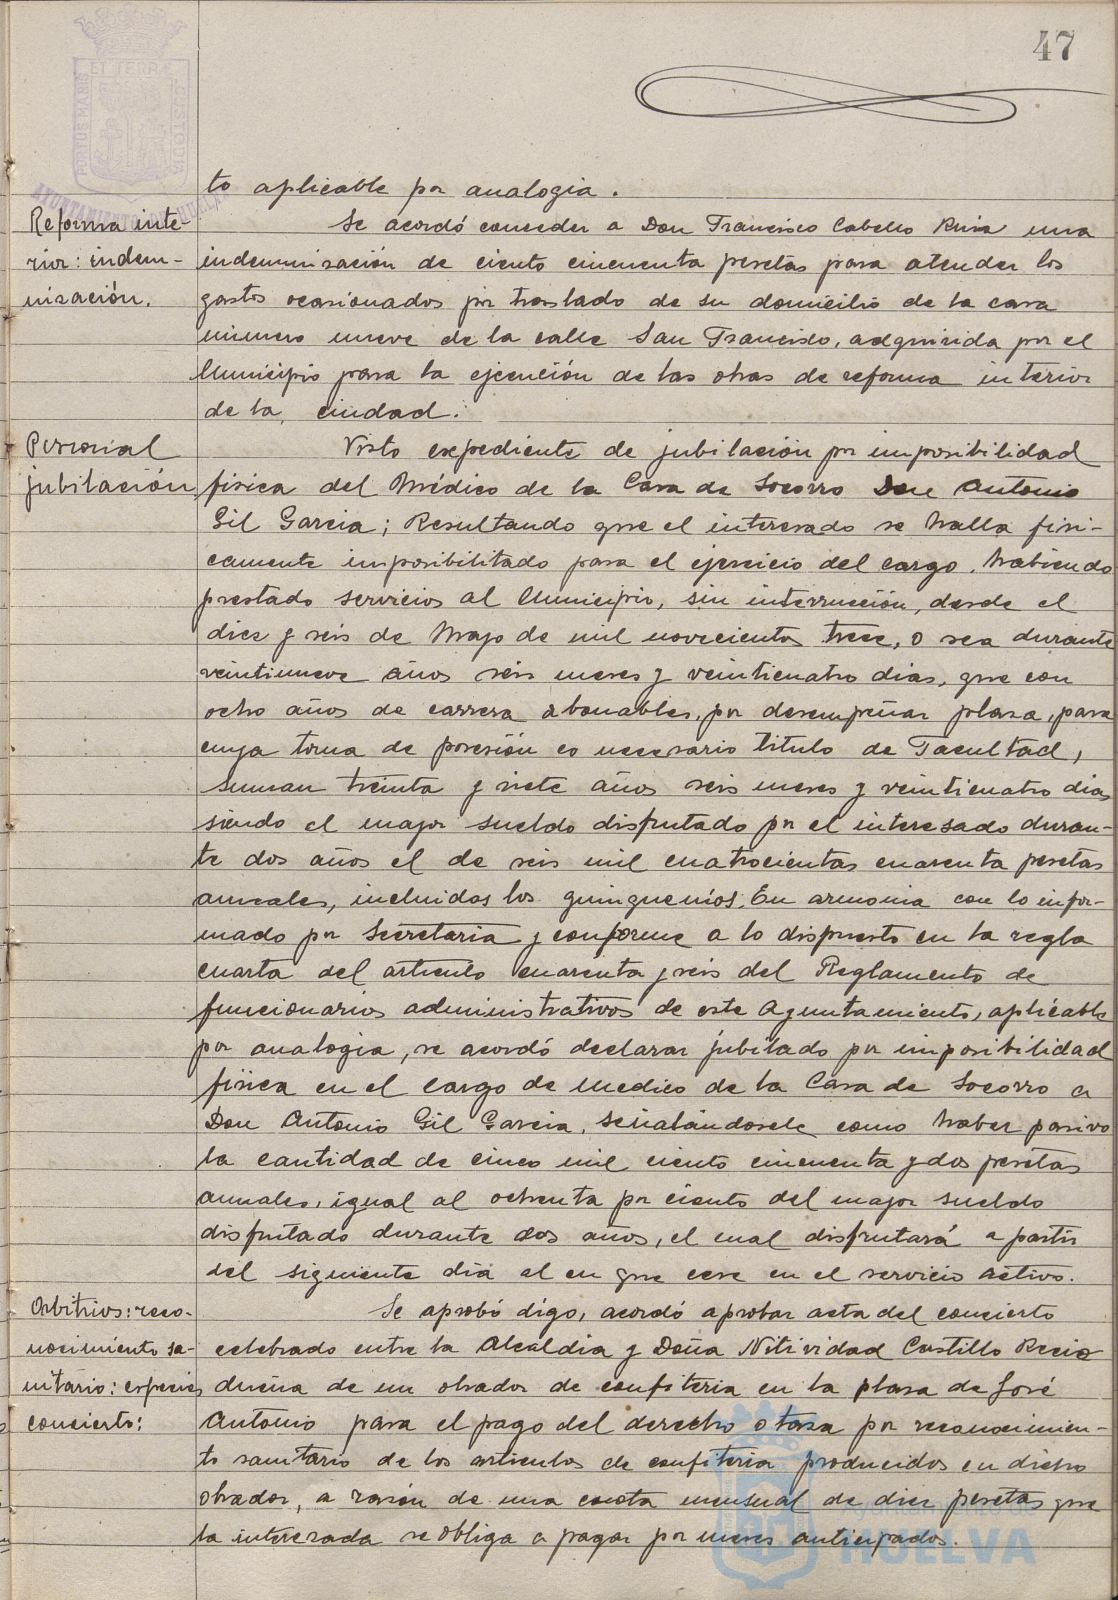 47
ET TERRÆ
PORTUS MARIS
CUSTODIA
AYUNTAMIENTO DE HUELVA
to aplicable por analogia.
Reforma inte-
rior: indem-
nización.
Se acordó conceder a Don Francisco Cabello una
indemnización de ciento cincuenta pesetas para atender los
gastos ocasionados por traslado de su domicilio de la casa
número nueve de la calle San Francisco, adquirida por el
Municipio para la ejecución de las obras de reforma interior
de la ciudad.
Personal
jubilación
Visto expediente de jubilación por imposibilidad
fisica del Médico de la Casa de Socorro Don Antonio
Gil Garcia; Resultando que el interesado se halla fisi-
camente imposibilitado para el ejercicio del cargo, habiendo
prestado servicios al Municipio, sin interrucción, desde el
diez y seis de Mayo de mil novecientos trece, o sea durante
veintinueve años seis meses y veinticuatro dias, que con
ocho años de carrera abonables, por desempeñar plaza, para
cuya toma de posesión es necesario titulo de Facultad,
suman treinta y siete años seis meses y veinticuatro dias
siendo el mayor sueldo disfrutado por el interesado duran-
te dos años el de seis mil cuatrocientas cuarenta pesetas
anuales, incluidos los quinquenios. En armonia con lo infor-
mado por Secretaria y conforme a lo dispuesto en la regla
cuarta del articulo cuarenta y seis del Reglamento de
funcionarios administrativos de este Ayuntamiento, aplicable
por analogia, se acordó declarar jubilado por imposibilidad
fisica en el cargo de medico de la Casa de Socorro a
Don Antonio Gil Garcia, señalándosele como haber pasivo
la cantidad de cinco mil ciento cincuenta y dos pesetas
anuales, igual al ochenta por ciento del mayor sueldo
disfrutado durante dos años, el cual disfrutará a partir
del siguiente dia al en que cese en el servicio activo.
Arbitrios: reco-
nocimiento sa-
nitario: especies
concierto:
Se aprobó digo, acordó aprobar acta del concierto
celebrado entre la Alcaldia y Doña Nitividad Castillo Recio
dueña de un obrador de confiteria en la plaza de José
Antonio para el pago del derecho o tasa por reconocimien-
to sanitario de los articulos de confiteria producidos en dicho
obrador, a razón de una cuota mensual de diez pesetas que
la interezada se obliga a pagar por meses anticipados.
Ayuntamiento de
HUELVA